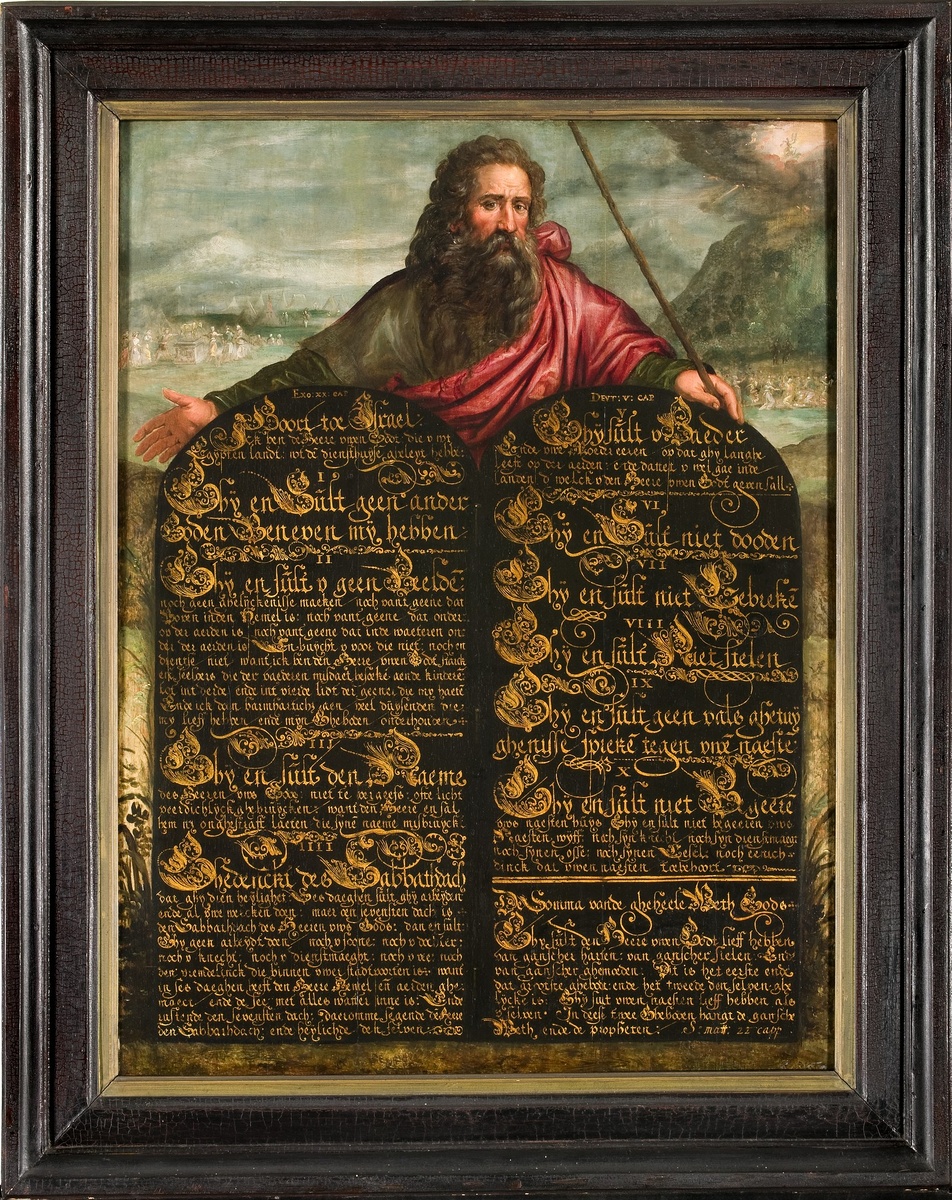 EXO: XX: CAP
Hoort toe Israel:
Ick ben de Heere uwen Godt die v wt
Egypten landt: wt de diensthuyse geleyt hebbe:
I
Ghy en Sult geen ander
Goden Beneven my hebben
II
Ghy en sult v geen Beelde:
noch geen ghelyckenisse maeken noch vant geene dat
Boven inden Hemel is: noch vant geene dat onder
op der aerden is: noch vant geene dat inde waeteren on
der der aerden is: En buycht v voor die niet: noch en
dientse niet want ick ben den Heere uwen Godt, starck
die der vaederen misdaet besoeke aende kindere
tot int derde ende int vierde lidt der geener die my haete
Ende ick doen barmharticheyt aen veel duysenden die
my lieff hebben ende myn Gheboden onderhouden
III
Ghy en sult den Naeme
des Heeren uws Godts niet te vergeefs: ofte licht
veerdichlyck ghebruycken: want den Heere en sal
hem niet ongestraft laeten die syne naeme misbruyckt
IIII
Ghedenckt des Sabbathdach
dat ghy dien heylighet: Ses daeghen sult ghy arbeyden
ende al uwe wercken doen: maer den sevensten dach is
den Sabbathdach des Heeren uws Gods: dan en sult
Ghy geen arbeydt doen: noch v soone: noch v dochter:
noch v knecht: noch v dienstmaeght: noch v vee: noch
den vremdelinck die binnen uwer stadt is: want
in ses daeghen heeft den Heere Hemel en aerden ghe
maect ende de see: met alles wat der inne is: Ende
ruste den sevensten dach: Daeromme segende de Heere
den Sabbathdach: ende heylichde den selven
DEVT: V: CAP
V
Ghy sult v Vaeder
Ende uwe Moeder eeren op dat ghy langhe
leeft op der aerden: ende dattet v wel gae inde
landen d welck v den Heere uwen Godt geven sall
VI
Ghy en Sult niet dooden
VII
Ghy en sult niet Eebreke
VIII
Ghy en sult Niet stelen
IX
Ghy en sult geen vals ghetuy
ghenisse spreke tegen uwe naeste
X
Ghy en sult niet Begeere
uws naesten huys Ghy en sult niet begeeren uws
Naesten wyff: noch syn knecht: noch syn dienstmaeg
noch synen osse: noch synen Eesel: noch eenich
dinck dat uwen naesten toebehoort
De Somma vande gheheele Weth Gods
Ghy sult den Heere uwen Godt lieff hebben
van ganscher harten: van gansscher sielen: Ende
van gansscher ghemoeden: Dit is het eerste ende
dat grootste ghebodt: ende het tweede den selven ghe
lycke is: Ghy sult uwen naesten lieff hebben als
v selven: In deese twee Gheboden hangt de gansche
Weth, ende de propheten: S: matt: 22 capp: